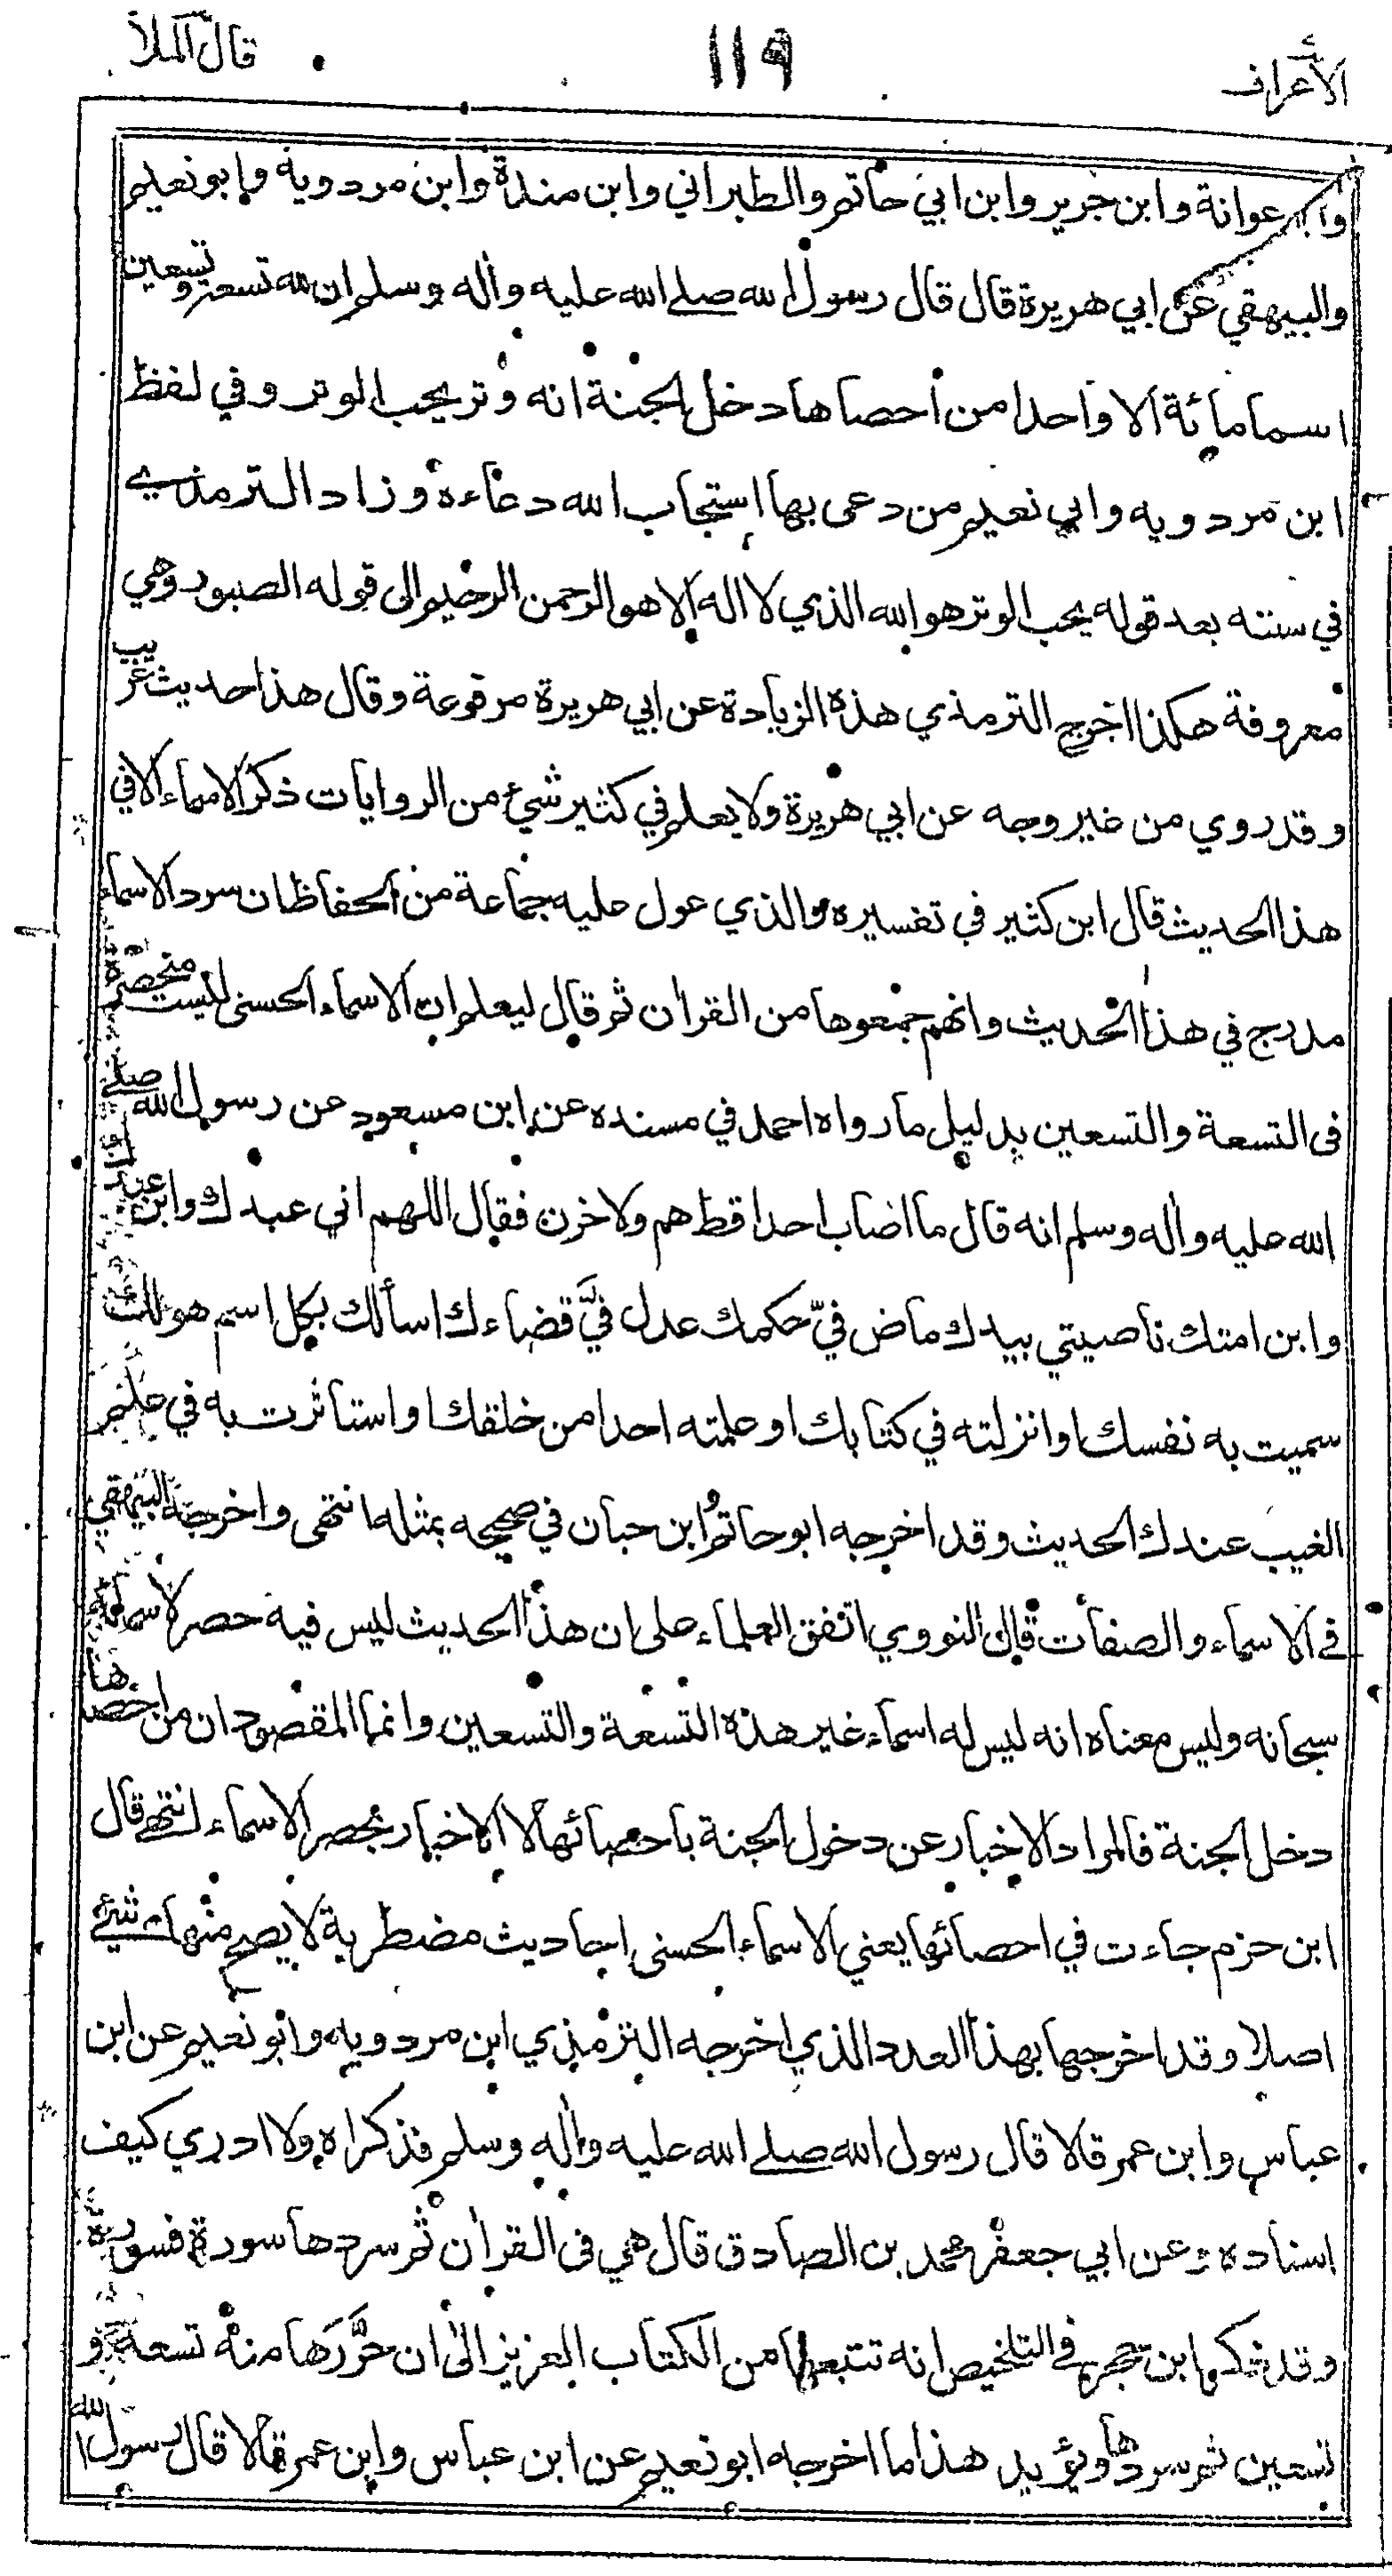 الأعراف ١١٩ قال الملأ
وابو عوانة وابن جرير وابن ابي حاتم والطبراني وابن مندة وابن مردويه وابو نعيم
والبيهقي عن ابي هريرة قال قال رسول الله صلى الله عليه واٰله وسلم ان لله تسعة وتسعين
اسما مائة الا واحدا من احصاها دخل الجنة انه وتر يحب الوتر وفي لفظ
ابن مردويه وابي نعيم من دعى بها استجاب الله دعاءه وزاد الترمذي
في سننه بعد قوله يحب الوتر هو الله الذي لا اله الا هو الرحمن الرحيم الى قوله الصبور وهي
معروفة هكذا اخرج الترمذي هذه الزيادة عن ابي هريرة مرفوعة وقال هذا حديث غريب
وقد روي من غير وجه عن ابي هريرة ولا يعلم في كثير شئ من الروايات ذكر الاسماء الا في
هذا الحديث قال ابن كثير في تفسيره والذي عول عليه جماعة من الحفاظ ان سرد الاسماء
مدرج في هذا الحديث وانهم جمعوها من القراٰن ثم قال ليعلم ان الاسماء الحسنى ليست منحصرة
فى التسعة والتسعين بدليل ما رواه احمد في مسنده عن ابن مسعود عن رسول الله صلى
الله عليه واٰله وسلم انه قال ما اصاب احدا قط هم ولا حزن فقال اللهم اني عبدك وابن عبدك
وابن امتك ناصيتي بيدك ماض فيّ حكمك عدل فيّ قضاءك اسألك بكل اسم هو لك
سميت به نفسك او انزلته في كتابك او علمته احدا من خلقك او استأثرت به في علم
الغيب عندك الحديث وقد اخرجه ابو حاتم ابن حبان في صحيحه بمثله انتهى واخرجه البيهقي
في الاسماء والصفات قال النووي اتفق العلماء على ان هذا الحديث ليس فيه حصر لاسمائه
سبحانه وليس معناه انه ليس له اسماء غير هذه التسعة والتسعين وانما المقصود ان من احصاها
دخل الجنة فالمراد الاخبار عن دخول الجنة باحصائها لا الاخبار بحصر الاسماء انتهى قال
ابن حزم جاءت في احصائها يعني الاسماء الحسنى احاديث مضطربة لا يصح منها شيئ
اصلا وقد اخرجها بهذا العدد الذي اخرجه الترمذي ابن مردويه وابو نعيم عن ابن
عباس وابن عمر قالا قال رسول الله صلى الله عليه واٰله وسلم فذكراه ولا ادري كيف
اسناده وعن ابي جعفر محمد بن الصادق قال هي فى القراٰن ثم سردها سورة فسورة
وقد ذكر ابن حجر في التلخيص انه تتبعها من الكتاب العزيز الى ان حرَّرها منه تسعة و
تسعين ثم سردها ويؤيد هذا ما اخرجه ابو نعيم عن ابن عباس وابن عمر قالا قال رسول الله